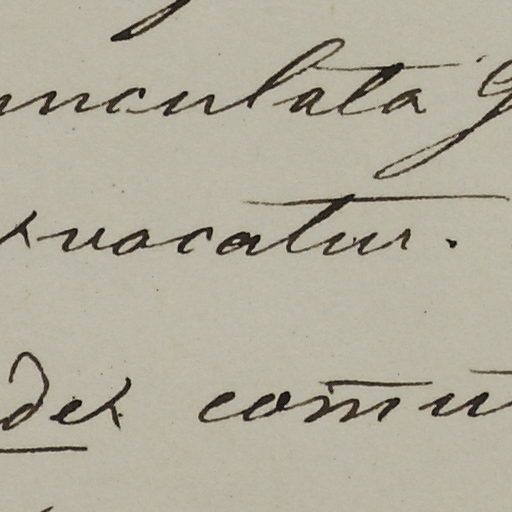 unculata G
xvocatur.
dex com̄u